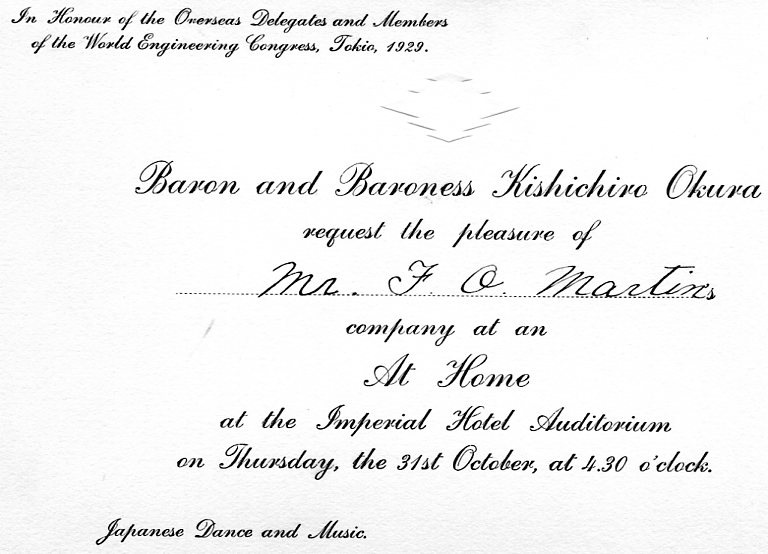 In Honour of the Overseas Delegates and Members
of the World Engineering Congress, Tokio, 1929.
Baron and Baroness Kishichiro Okura
request the pleasure of
Mr. F. O. Martin's
company at an
At Home
at the Imperial Hotel Auditorium
on Thursday, the 31st October, at 4.30 o'clock.
Japanese Dance and Music.